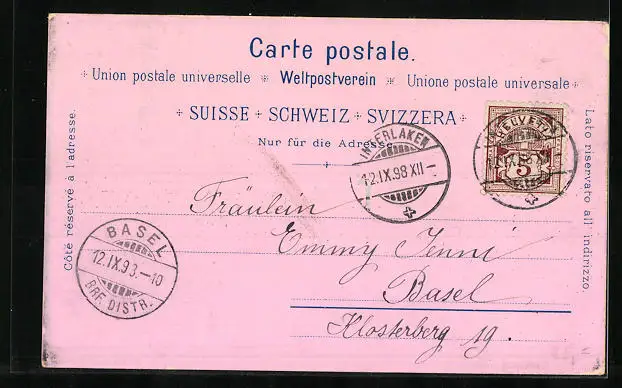 Carte postale.
Union postale universelle * Weltpostverein * Unione postale universale
+ SUISSE + SCHWEIZ + SVIZZERA +
Nur für die Adresse
Côté réservé à l'adresse.
Lato riservato all indirizzo.
HELVETIA
5
INTERLAKEN
12.IX.98 XII-
Fräulein
Emmy Jenni
Basel
Klosterberg 19.
BASEL
12.IX.98.-10
BRF. DISTR.